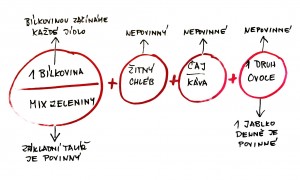 BÍLKOVINOU ZAČÍNÁME
KAŽDÉ JÍDLO
NEPOVINNÝ
NEPOVINNÉ
NEPOVINNÝ
1 BÍLKOVINA
MIX ZELENINY
+
ŽITNÝ
CHLÉB
+
ČAJ
KÁVA
+
1 DRUH
OVOCE
ZÁKLADNÍ TALÍŘ
JE POVINNÝ
1 JABLKO
DENNĚ JE
POVINNÉ